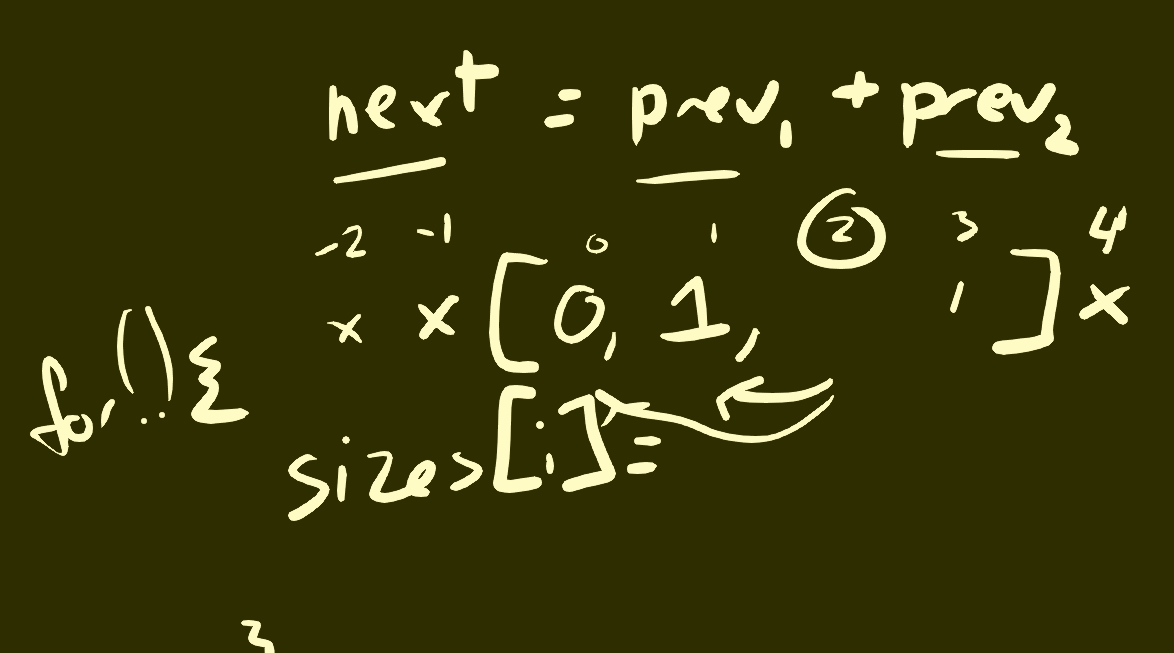 next = prev₁ + prev₂
-2 -1 0 1 2 3 4
x x [0, 1, 1 ] x
for(..){
sizes[i]=
}